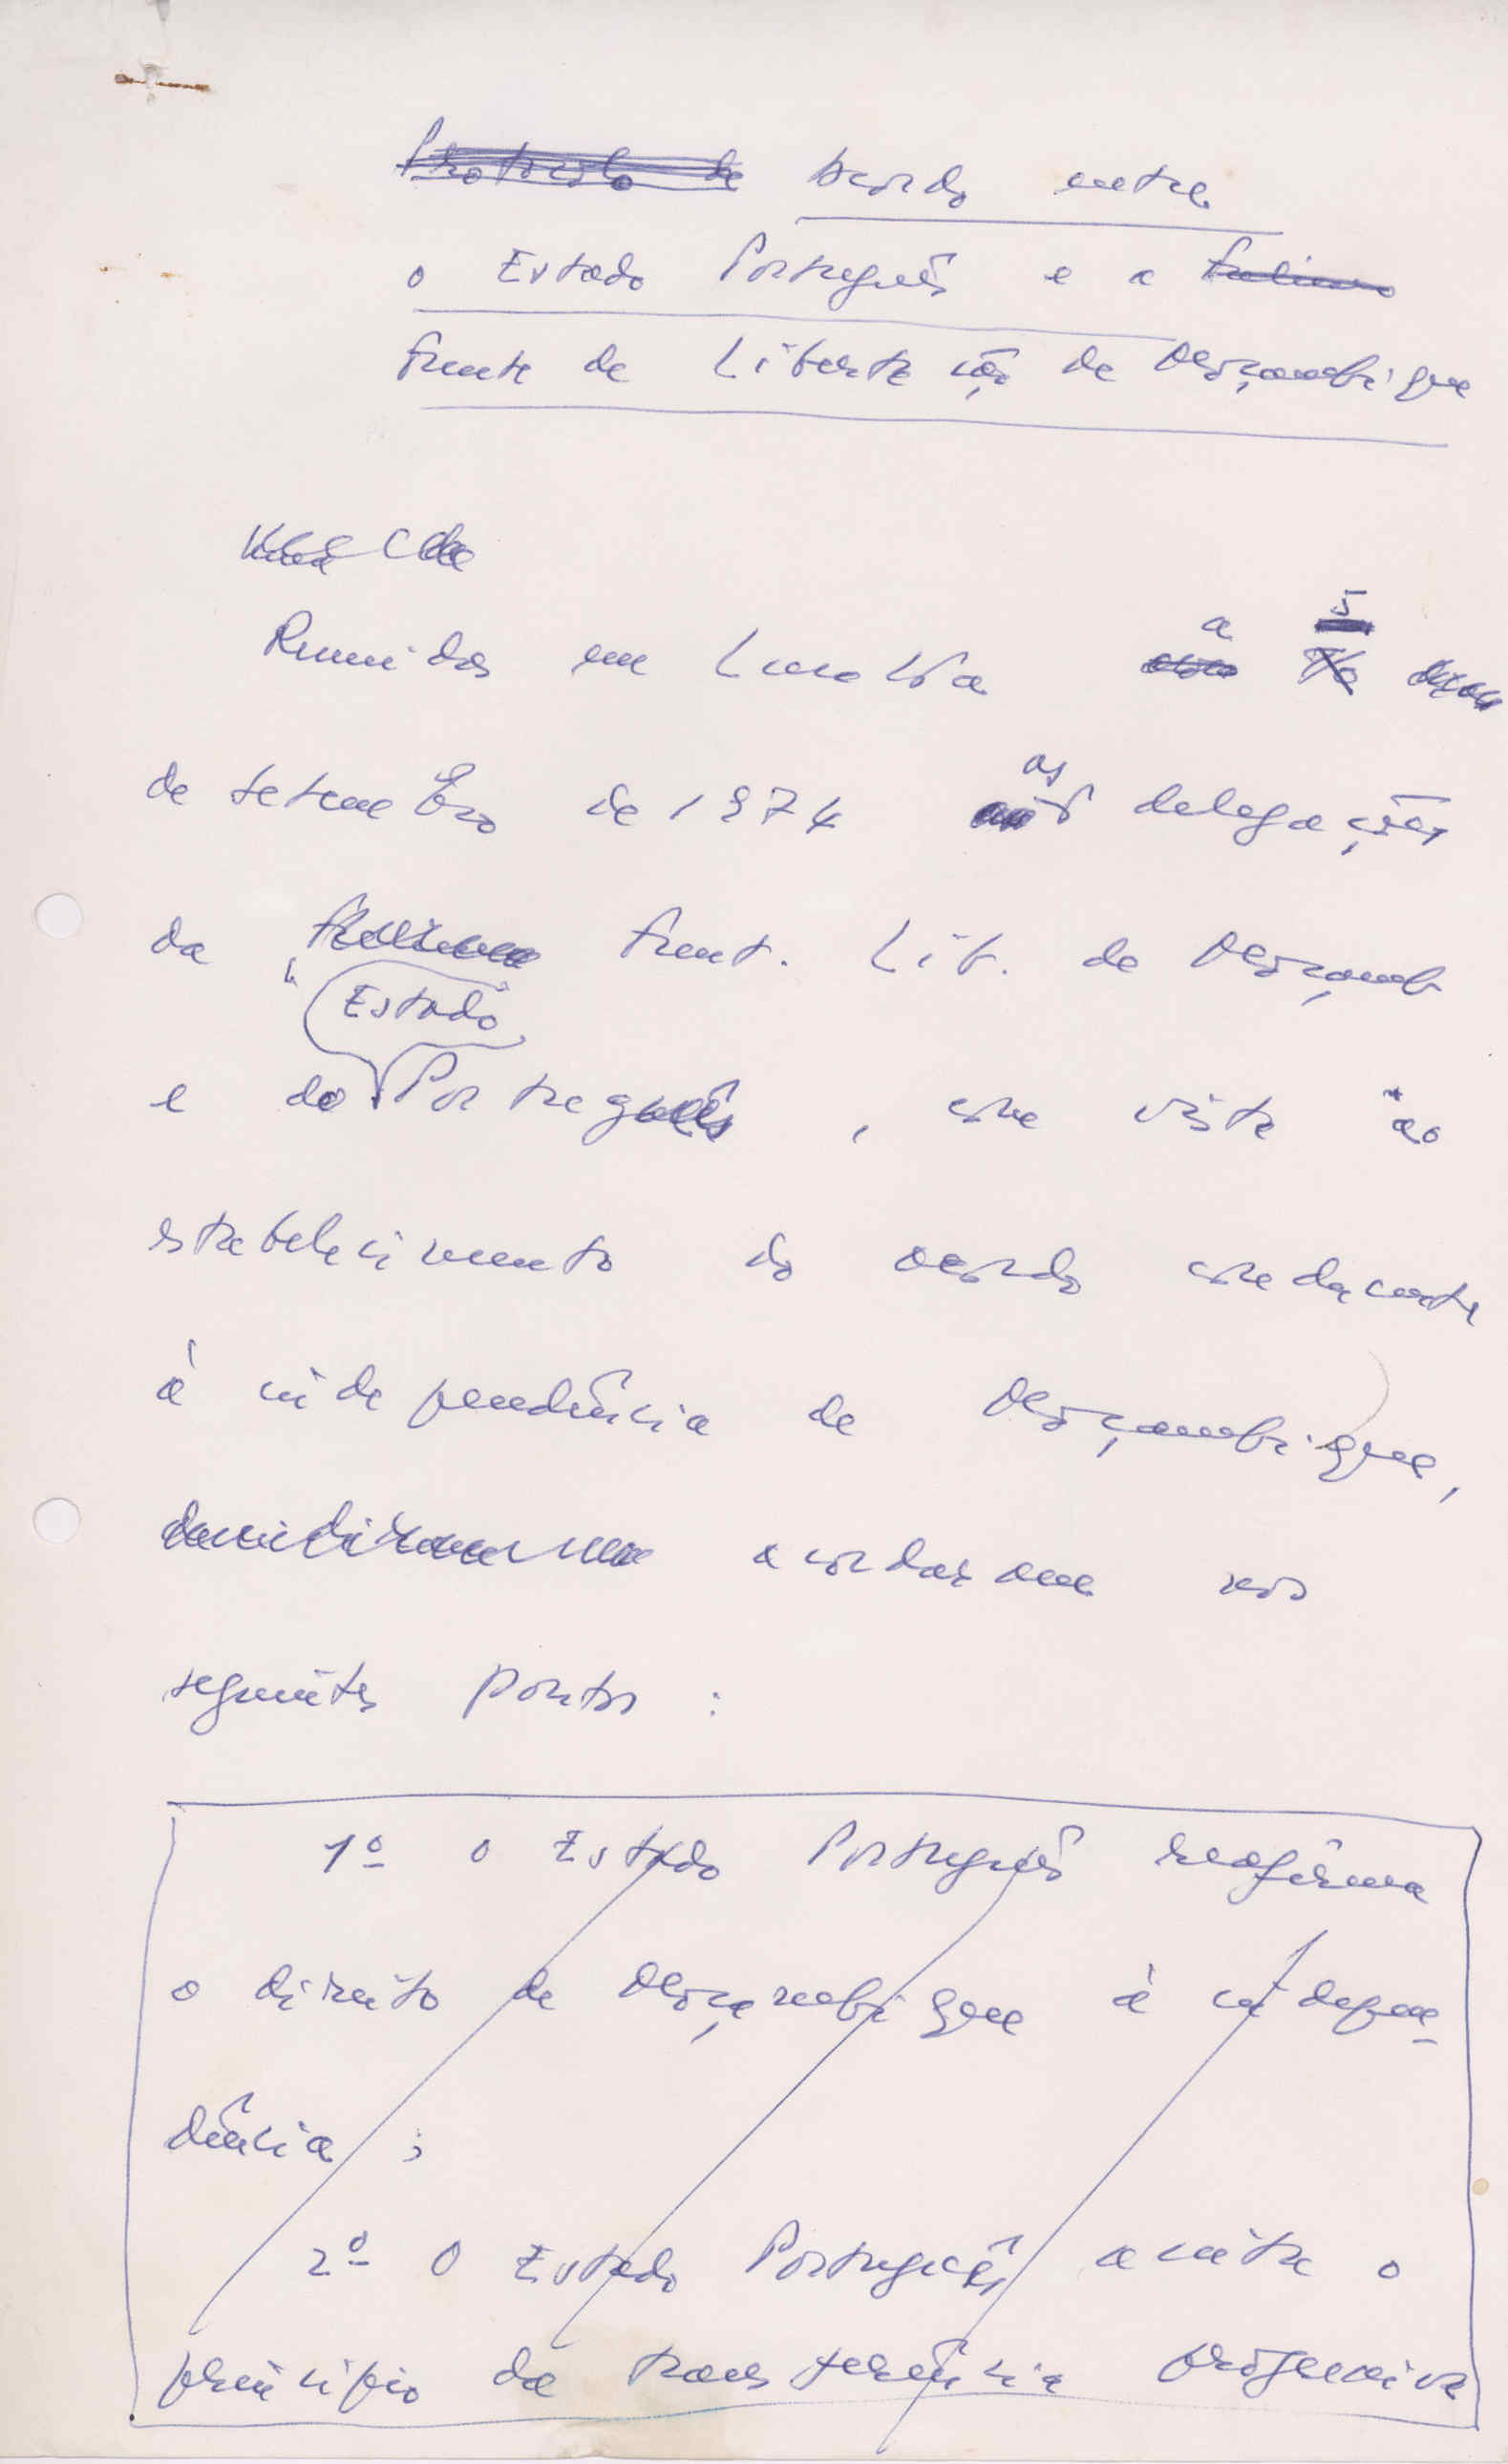 Protocolo de Acordo entre
o Estado Português e a Frelimo
Frente de Libertação de Moçambique
Reunidos em Lusaka a 5
de setembro de 1974 as delegações
da Frelimo Frent. Lib. de Moçamb
Estado
e do Português, com vista ao
estabelecimento do acordo conducente
à independência de Moçambique,
acordaram nos
seguintes pontos:
1º o Estado Português reafirma
o direito de Moçambique à indepen-
dência;
2º O Estado Português aceita o
princípio da transferência progressiva